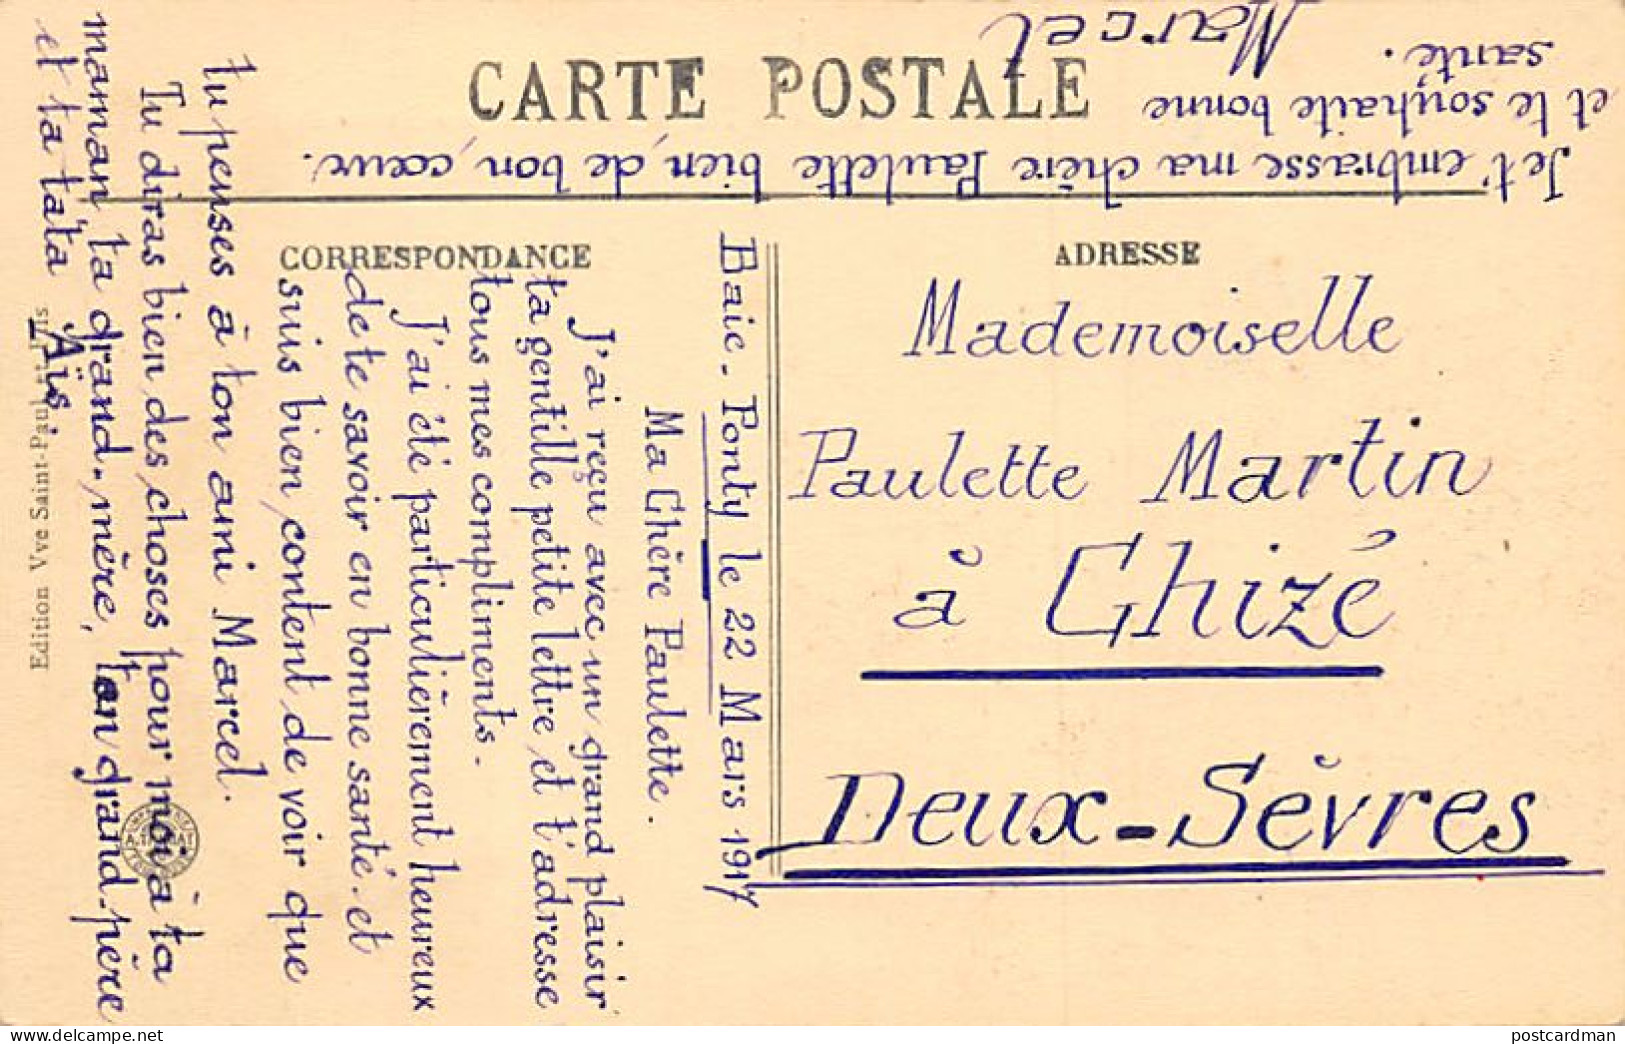 CARTE POSTALE
CORRESPONDANCE
ADRESSE
Baie-Ponty le 22 Mars 1917
Ma Chère Paulette.
J'ai reçu avec un grand plaisir
ta gentille petite lettre et t'adresse
tous mes compliments.
J'ai été particulièrement heureux
de te savoir en bonne santé et
suis bien content de voir que
tu penses à ton ami Marcel.
Tu diras bien des choses pour moi à ta
maman, ta grand-mère, ton grand-père
et ta tata Aïs.
Je t'embrasse ma chère Paulette bien de bon cœur.
et te souhaite bonne
santé.
Marcel
Mademoiselle
Paulette Martin
à Chizé
Deux-Sèvres
Edition Vve Saint-Paul
delcampe.net
postcardman